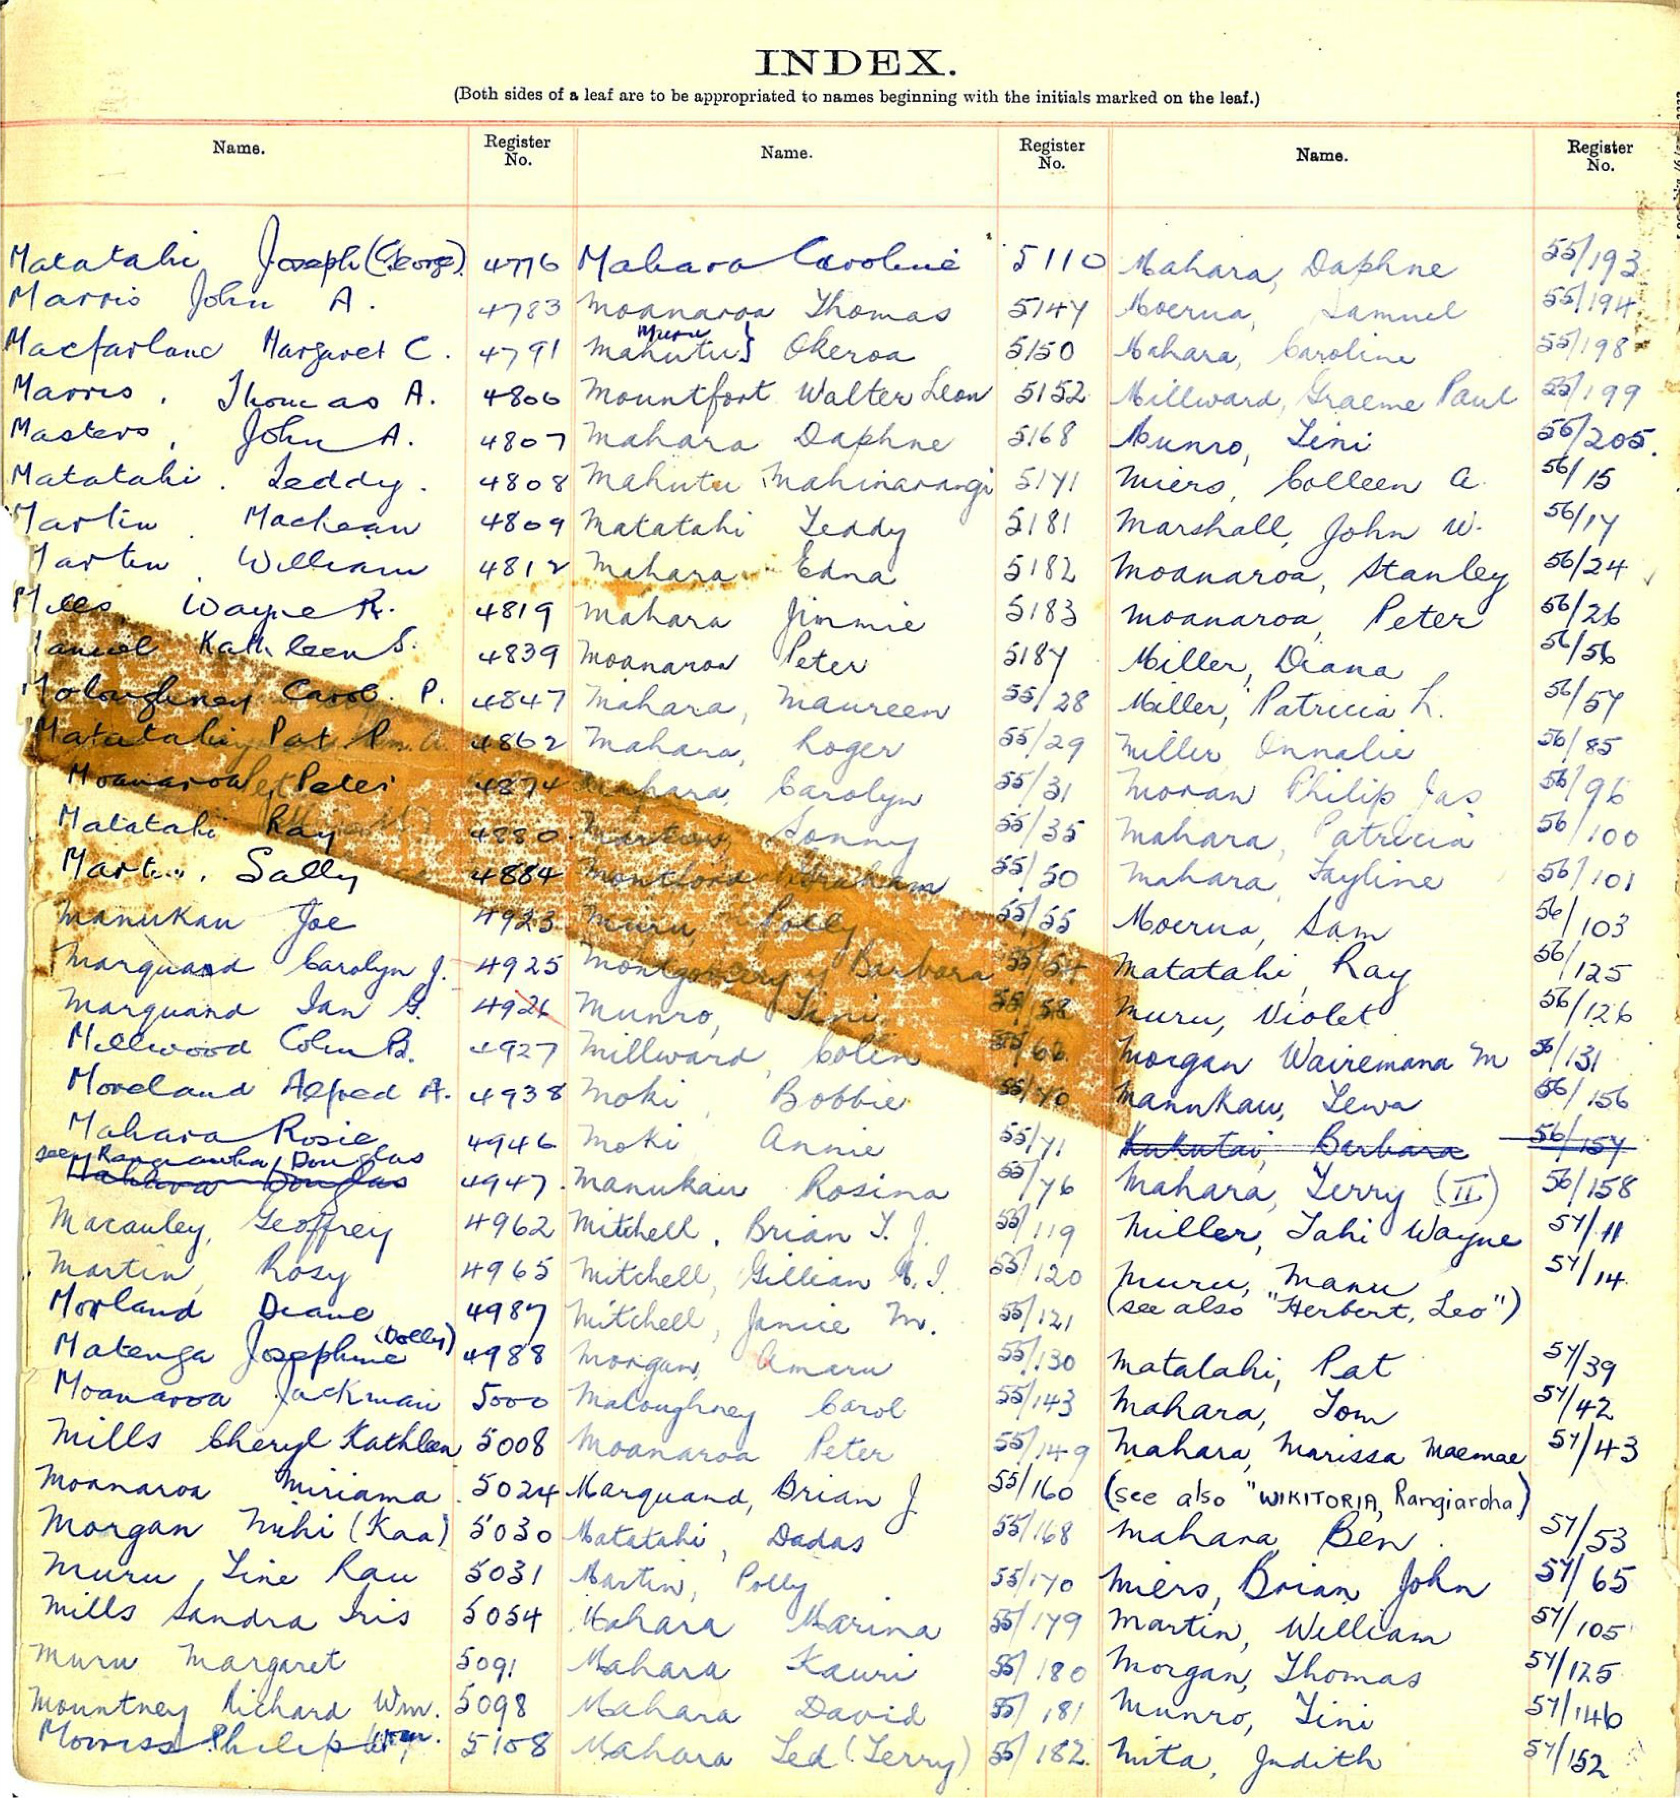 INDEX.
(Both sides of a leaf are to be appropriated to names beginning with the initials marked on the leaf.)
Name. Register No. Name. Register No. Name. Register No.
Matatahi Joseph (George) 4776
Marris John A. 4783
Macfarlane Margaret C. 4791
Marris, Thomas A. 4806
Masters, John A. 4807
Matatahi. Teddy. 4808
Martin. 4809
Martin. William 4812
Mills Wayne R. 4819
Kathleen S. 4839
Moloughney Carol P. 4847
Matatahi Pat 4862
Moanaroa Peter 4874
Matatahi Ray 4880
Martin. Sally 4884
Manukau Joe 4923
Marquand Carolyn J. 4925
Marquand Ian G. 4926
Millwood Colin B. 4927
Moreland Alfred A. 4938
Mahara Rosie 4946
see Douglas
Mahara Douglas 4947
Macauley, Geoffrey 4962
Martin, Rosy 4965
Morland Diane 4987
Matenga Josephine (Dolly) 4988
Moanaroa Jackman 5000
Mills Cheryl Kathleen 5008
Moanaroa Miriama 5024
Morgan Mihi (Kaa) 5030
Muru, Tine Rau 5031
Mills Sandra Iris 5054
Muru Margaret 5091
Mountney Richard Wm. 5098
Morriss Philip Wm. 5108
Mahara Caroline 5110
Moanaroa Thomas 5147
Muru
Mahutu} Okeroa 5150
Mountfort Walter Leon 5152
Mahara Daphne 5168
Mahutu Mahinarangi 5171
Matatahi Teddy 5181
Mahara Edna 5182
Mahara Jimmie 5183
Moanaroa Peter 5187
Mahara, Maureen 55/28
Mahara, Roger 55/29
Mahara, Carolyn 55/31
Martin, Sonny 55/35
Graham 55/50
Muru, Polly 55/55
Montgomery Barbara 55/57
Munro, Tini 55/58
Millward, Colin 55/62
Moki, Bobbie 55/70
Moki Annie 55/71
Manukau Rosina 55/76
Mitchell, Brian T. J. 55/119
Mitchell, Gillian 55/120
Mitchell, Janice M. 55/121
Morgan, Amaru 55/130
Moloughney Carol 55/143
Moanaroa Peter 55/149
Marquand, Brian J 55/160
Matatahi, Dadas 55/168
Martin, Polly 55/170
Mahara Marina 55/179
Mahara Kauri 55/180
Mahara David 55/181
Mahara Ted (Terry) 55/182
Mahara, Daphne 55/193
Moerua, Samuel 55/194
Mahara, Caroline 55/198
Millward, Graeme Paul 55/199
Munro, Tini 56/205.
Miers, Colleen A. 56/15
Marshall, John W. 56/17
Moanaroa, Stanley 56/24
Moanaroa, Peter 56/26
Miller, Diana 56/56
Miller, Patricia L. 56/57
Miller Onnalie 56/85
Moran Philip Jas 56/96
Mahara, Patricia 56/100
Mahara, Tayline 56/101
Moerua, Sam 56/103
Matatahi, Ray 56/125
Muru, Violet 56/126
Morgan Wairemana M 56/131
Manukau, Tewa 56/156
Kukutai, Barbara 56/157
Mahara, Terry (II) 56/158
Miller, Tahi Wayne 57/11
Muru, Manu 57/14
(see also "Herbert, Leo")
Matatahi, Pat 57/39
Mahara, Tom 57/42
Mahara, Marissa Maemae 57/43
(see also "WIKITORIA, Rangiaroha)
Mahara Ben. 57/53
Miers, Brian John 57/65
Martin, William 57/105
Morgan, Thomas 57/125
Munro, Tini 57/146
Mita, Judith 57/152